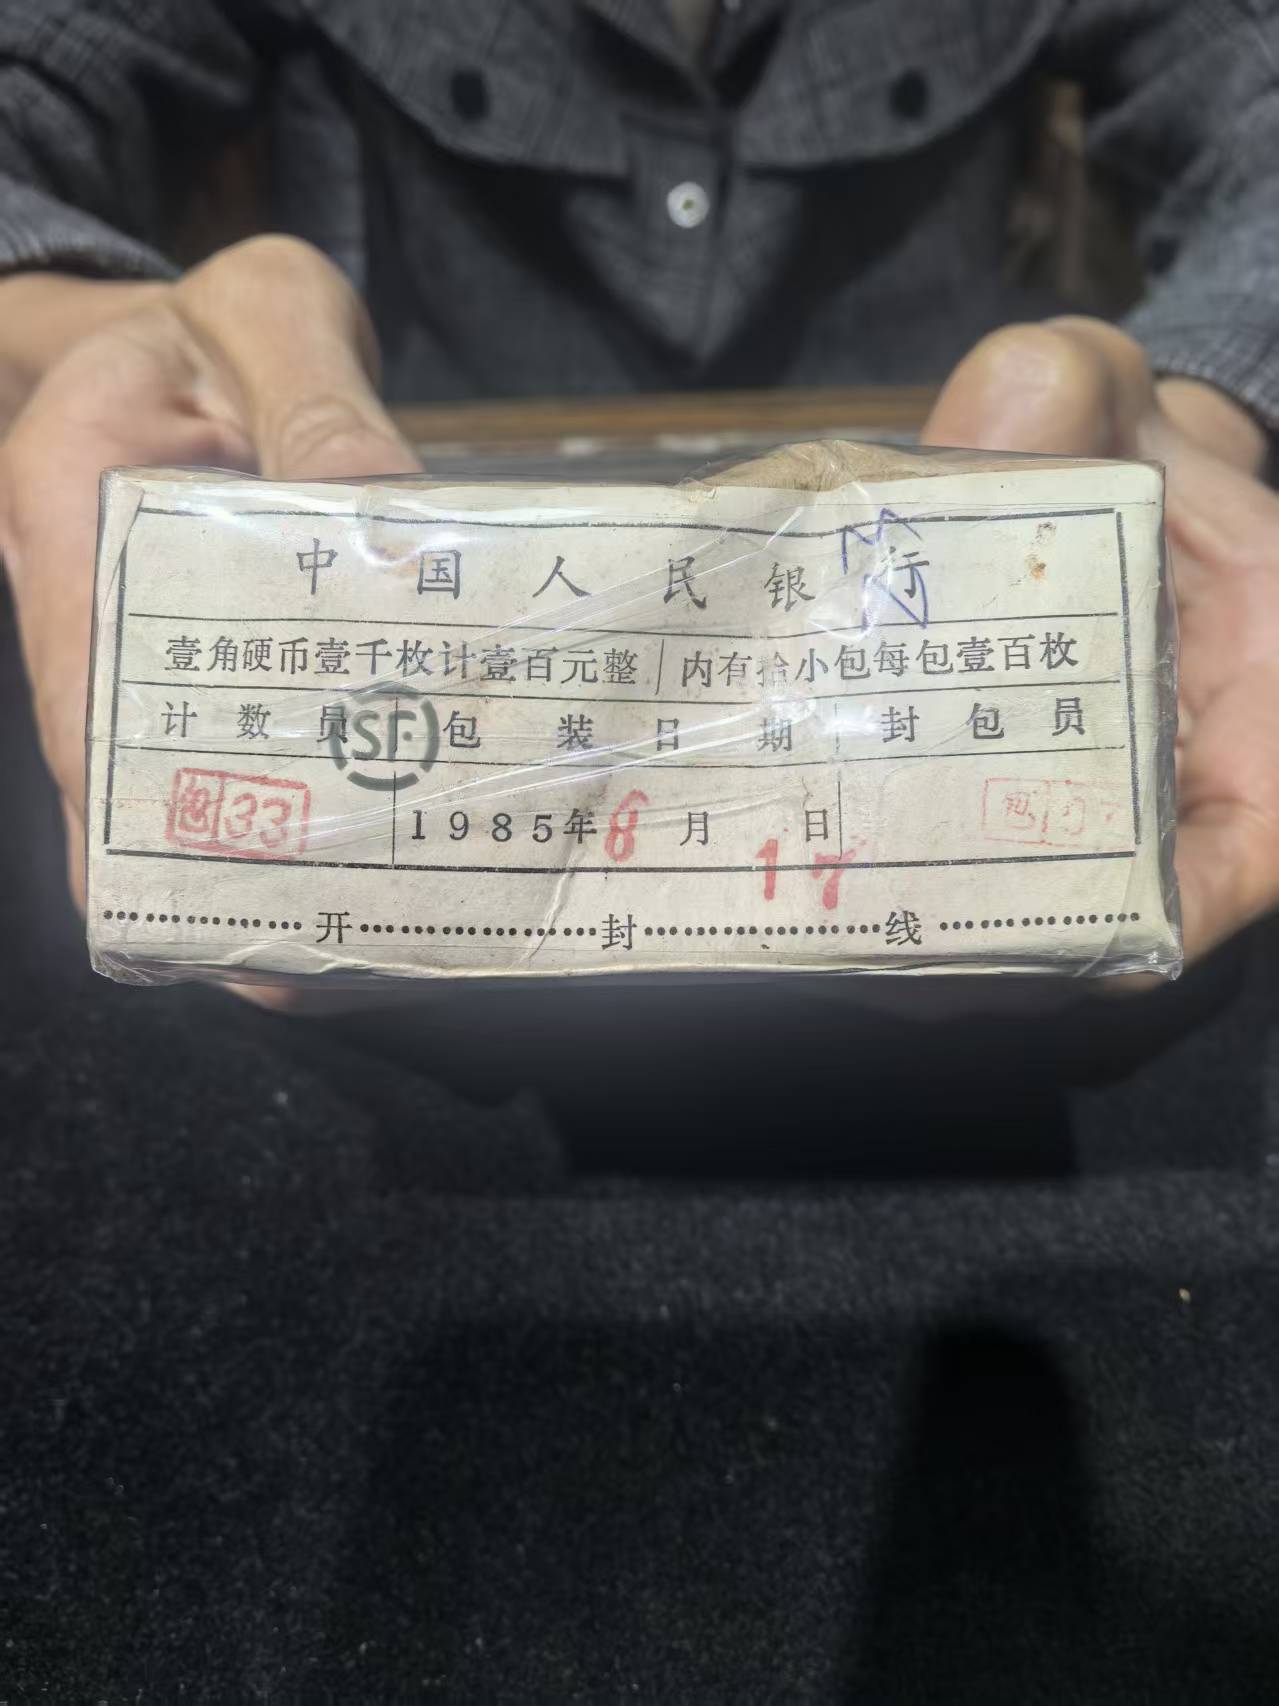 中国人民银行
壹角硬币壹千枚计壹百元整 内有拾小包每包壹百枚
计数员 包装日期 封包员
SF
包33 1985年8月17日
开封线